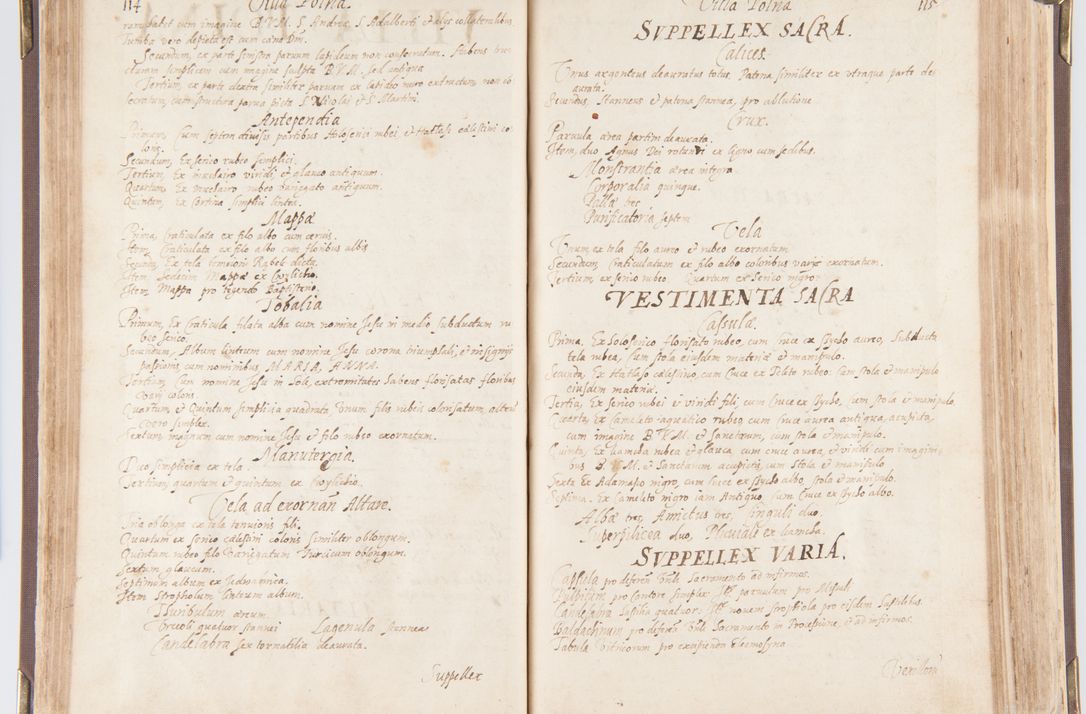 114 Villa Polna.
cum imagine B.V.M. S. Andreæ, S. Adalberti, et alijs collateralibus
Tumba vero depicta est cum cæna Dni.
Secundum, ex parte sinistra parvum lapideum non consecratum. Habens
simplicem cum imagine sculpta B.V.M. sed antiqua
Tertium, ex parte dextra similiter parvum ex lapidio muro extractum, non co
secratum, structura parva picta S. Nicolai et S. Martini.
Antependia
Primum, Cum septem divisis partibus Holoserici rubei et Hatlasi cælestini co
loris.
Secundum, Ex serico rubeo simplici.
Tertium, Ex muchaiero viridi, et glauco antiquum.
Quartum, Ex muchaiero rubeo variegato antiquum.
Quintum, Ex Cortina simplici lintea.
Mappæ
Prima, Craticulata ex filo albo cum cervis.
Item, Craticulata ex filo albo cum floribus albis
Secunda, Ex tela tenuiori Rabek dicta.
Item Sedecim Mappæ ex Cwylichio.
Item, Mappa pro tegendo Baptisterio.
Tobalia
Primum, Ex Craticula filata alba cum nomine Jesu in medio subductum ru
beo serico.
Secundum, Album linteum cum nomine Jesu corona triumphali, et insignijs
passionis, cum nominibus, MARIA, ANNA.
Tertium, Cum nomine Jesu in Sole, extremitates habens florisatas floribus
varij coloris
Quartum, et Quintum simplicia quadrata, Unum filis rubeis colorisatum, alteru
vero simplex.
Sextum, magnum cum nomine Jesu et filo rubeo exornatum.
Manutergia.
Duo simplicia ex tela.
Tertium, quartum et quintum ex Cwylichio.
Vela ad exornan̄ Altare.
Tria oblonga ex tela tenuioris fili.
Quartum ex serico cælestini coloris similiter oblongum.
Quintum rubeo filo variegatum Turcicum oblongum.
Sextum, glaucum.
Septimum album ex
Item Stropholum linteum album.
Thuribulum æreum.
Urceoli quatuor stannei Lagenula stannea
Candelabra sex tornatilia deaurata.
Suppellex
Villa Polna 115
SVPPELLEX SACRA.
Calices.
Unus argenteus deauratus totus, Patena similiter ex utraque parte de
aurata.
Secundus, Stanneus et patena stannea, pro ablutione
Crux.
Parvula ærea partim deaurata.
Item, duo Agnus Dei rotundi ex ligno cum sedibus.
Monstrantia ærea integra.
Corporalia quinque.
Pallæ tres
Purificatoria septem
Vela
Unum ex tela filo aureo et rubeo exornatum
Secundum, Craticulatum ex filo albo coloribus varijs exornatum.
Tertium, ex serico rubeo. Quartum ex Serico nigro.
VESTIMENTA SACRA
Casulæ.
Prima, Ex Holoserico florisato rubeo, cum Cruce ex Spycho aureo, Subducta
tela rubea, Cum stola eiusdem materiæ et manipulo.
Secunda, Ex Hatlaso cælestino, cum Cruce ex Teleto rubeo. Cum stola et manipulo
eiusdem materiæ.
Tertia, Ex serico rubei et viridi fili, cum Cruce ex Spycho, Cum stola et manipulo
Quarta, Ex Cameleto aquatico rubeo cum Cruce aurea antiqua, acupicta,
cum imagine B.V.M. et Sanctorum, cum stola et manipulo.
Quinta, Ex kamcha rubea et glauca, cum cruce aurea, et viridi cum imagini
bus B.V.M. et Sanctarum acupictis, cum Stola et manipulo
Sexta, Ex Adamasco nigro, cum Cruce ex Spycho albo, stola et manipulo.
Septima, Ex Cameleto nigro iam Antiquo, Cum Cruce ex Spycho albo.
Albæ tres, Amictus tres, Cinguli duo.
Superpilicea duo, Pluviale ex kamcha.
SVPPELLEX VARIA.
Capsula pro deferen̄ Vnli Sacramento ad infirmos.
Pulpitum pro Cantore simplex. Itē parvulum pro Missali.
Candelabra fusilia quatuor. Itē novem strophiola pro eisdem fusilibus.
Baldachinum pro deferen̄ Vnli Sacramento in Processione, et ad infirmos.
Tabula Vitricorum pro excipienda Eleemosyna.
Vexillum